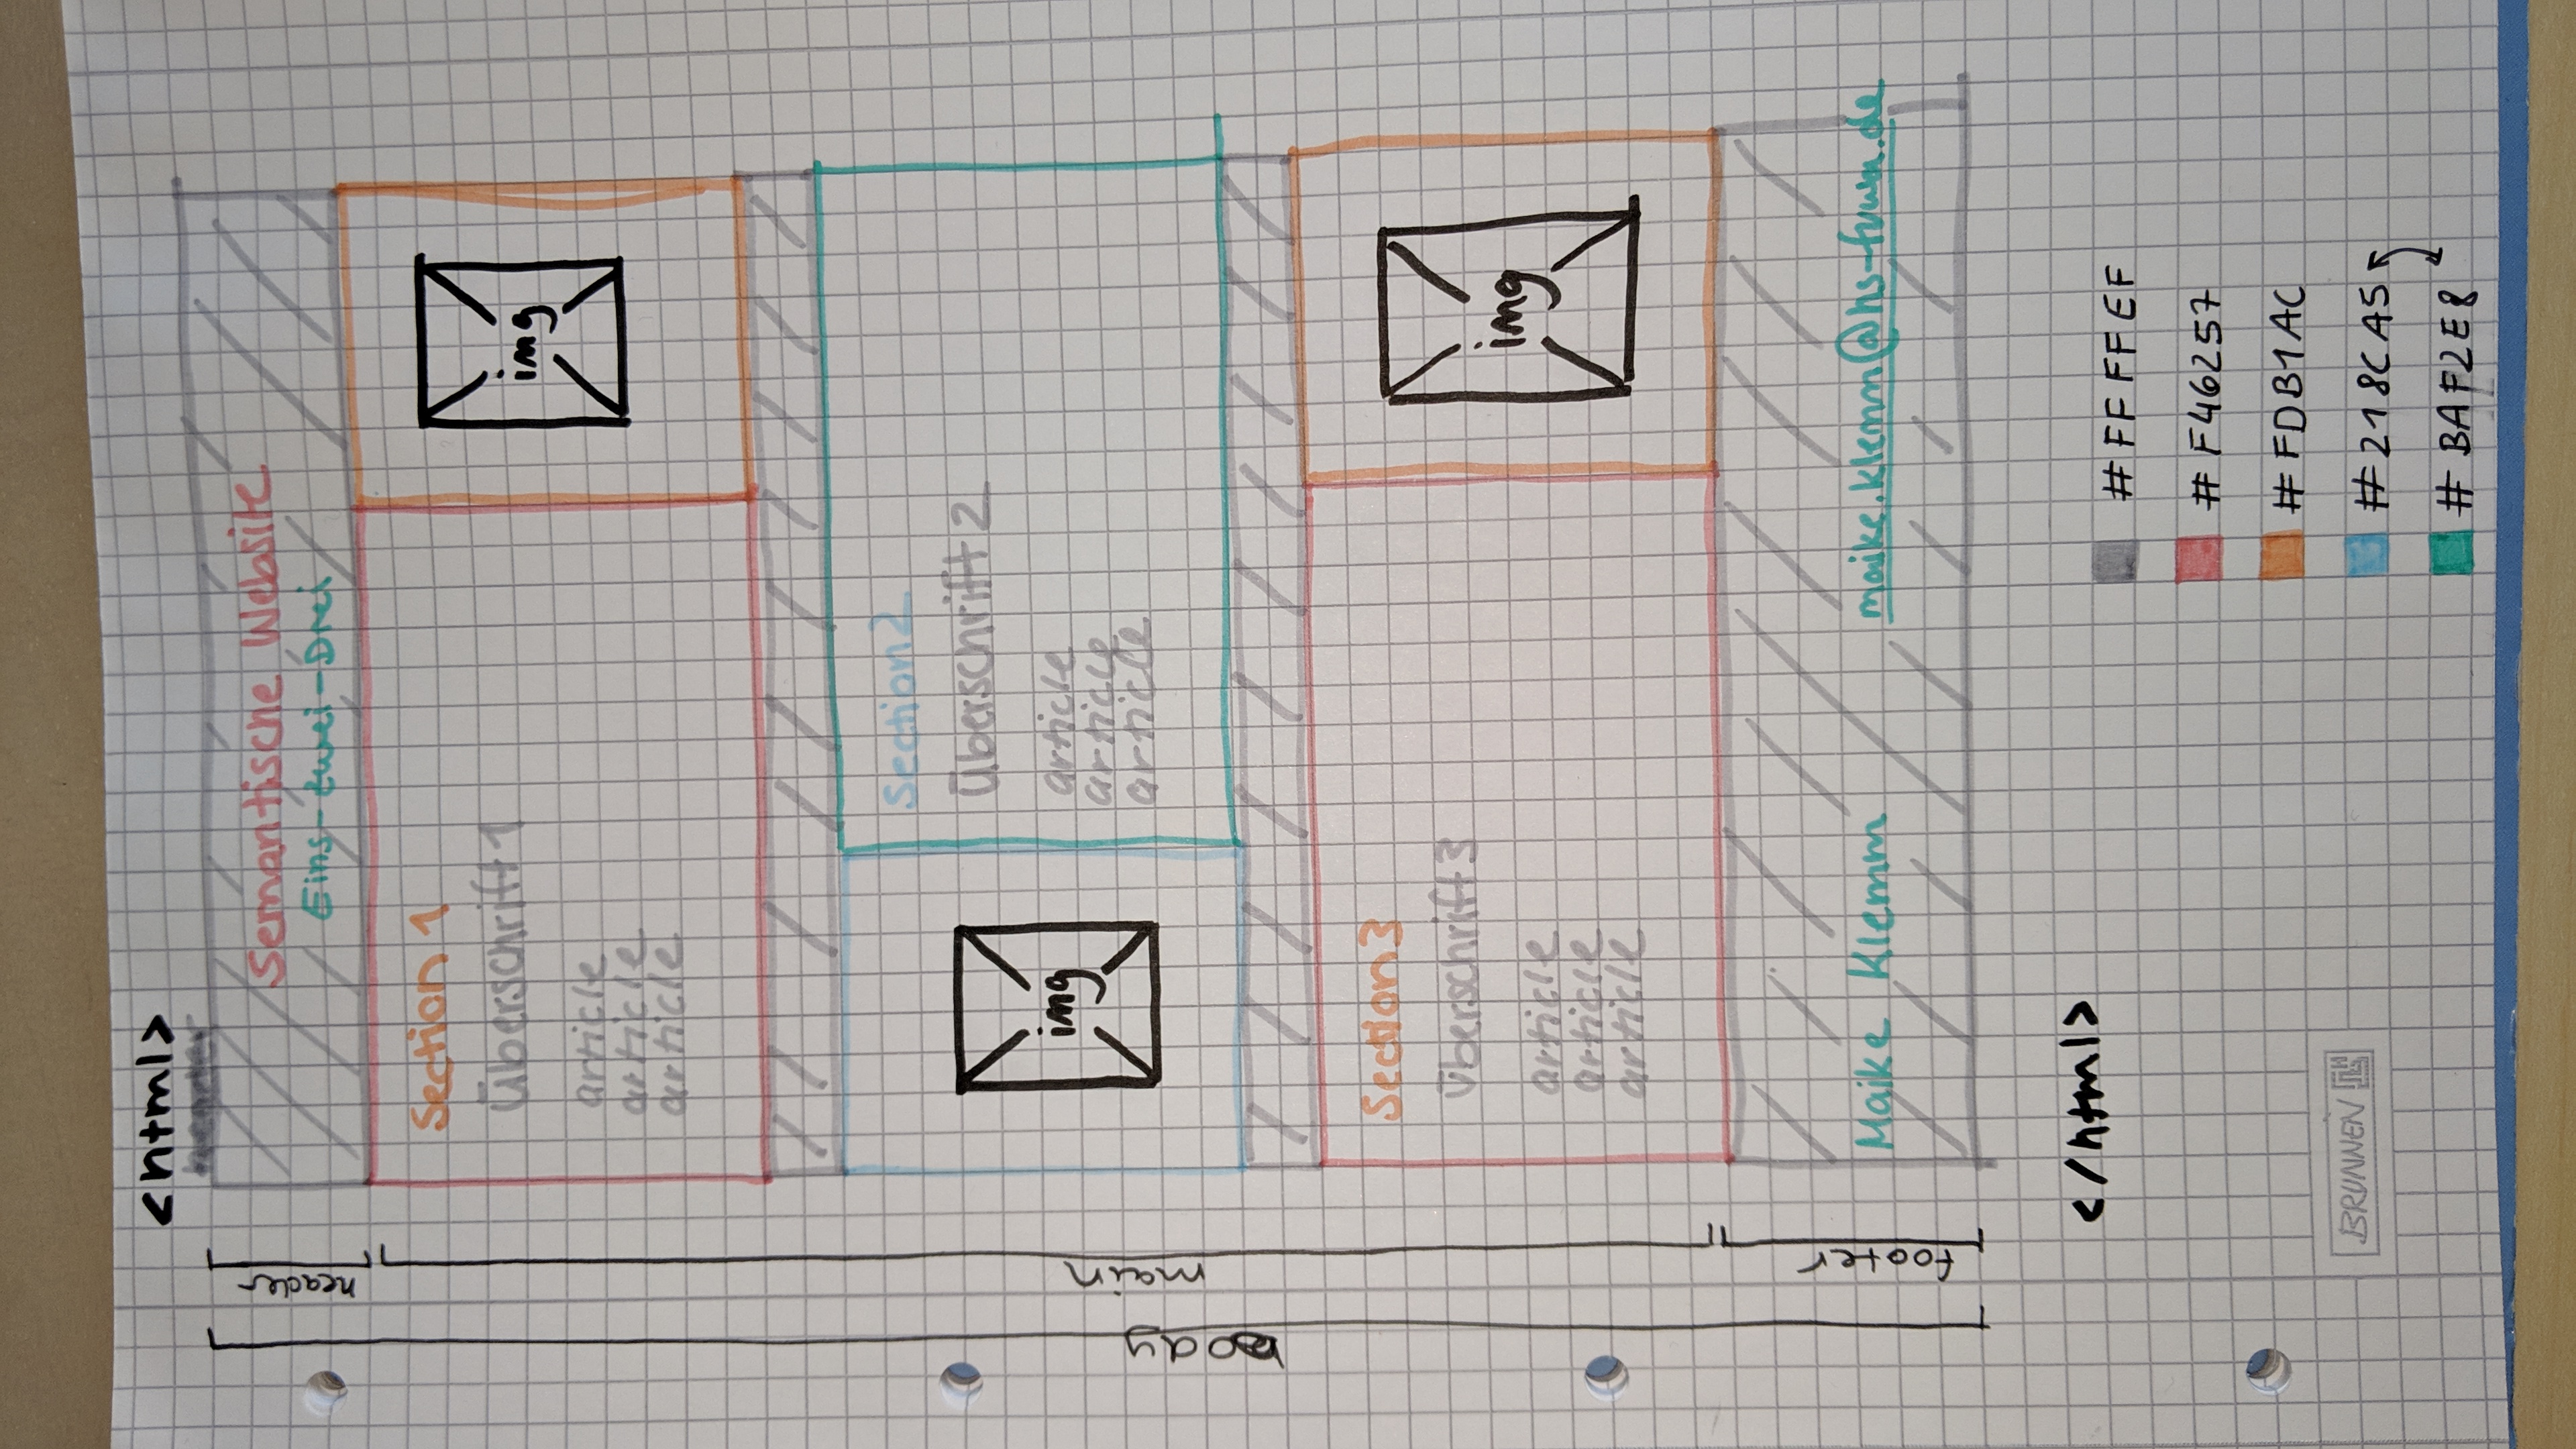 <html>
header
header
Semantische Website
Eins-Zwei-Drei
Section 1
Überschrift 1
article
article
article
img
body
main
img
Section 2
Überschrift 2
article
article
article
Section 3
Überschrift 3
article
article
article
img
footer
Maike Klemm
</html>
#FFFFEF
#F46257
#FDB1AC
#218CA5
#BAF2E8
BRUNNEN